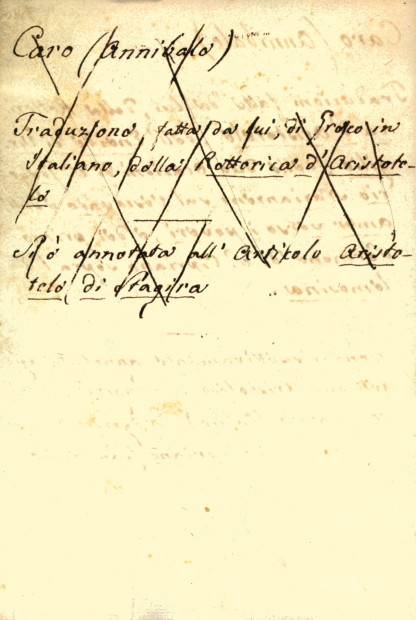 Caro (Annibale)
Traduzione, fatta da lui, di Greco in
Italiano, della Rettorica d'Aristote-
le
Si è annotata all' Articolo Aristo-
tele di Stagira